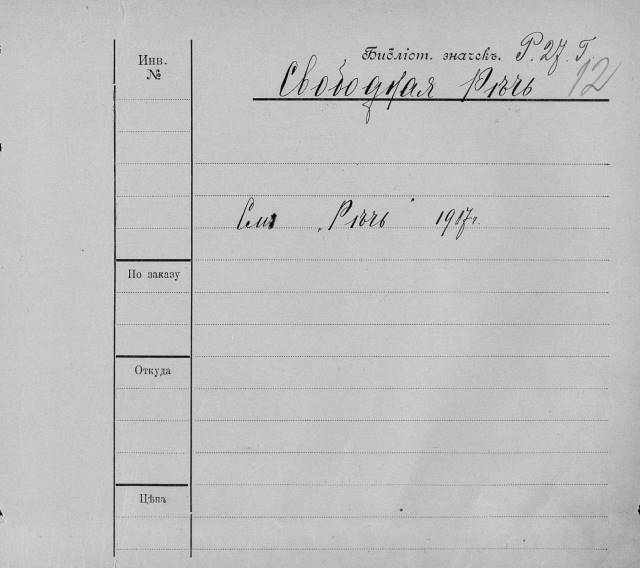 Инв.
№
Библіот. значекъ. Р. 27. Г
12
Свободная Рѣчь
См. „Рѣчь" 1917 г.
По заказу
Откуда
Цѣна